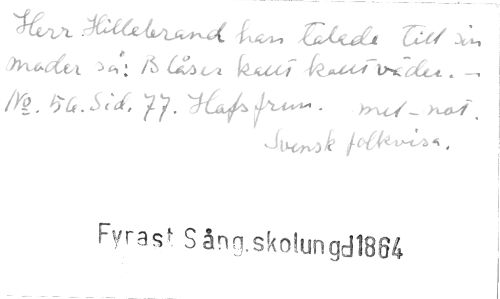 Herr Hillebrand han talade till sin
moder så: Blåser kallt kallt väder. –
No. 56. Sid. 77. Hafsfrun. mel-not.
Svensk folkvisa.
Fyrast Sång.skolungd1864